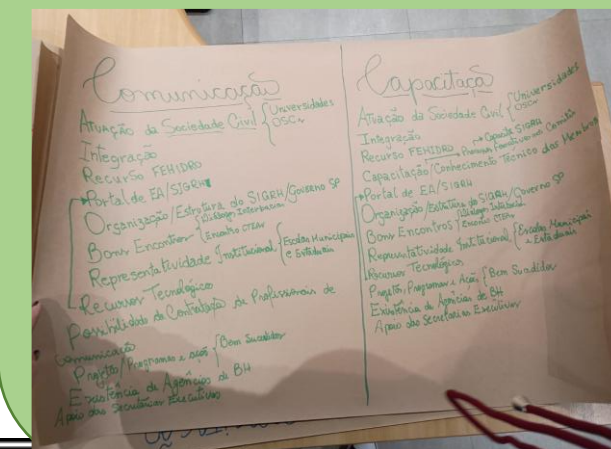 Comunicação
Atuação da Sociedade Civil { Universidades
OSCs
Integração
Recurso FEHIDRO
Portal de EA/SIGRH
Organização/Estrutura do SIGRH/Governo SP
Bons Encontros { Diálogo Interbacias
Encontro CTEM
Representatividade Institucional { Escolas Municipais
e Estaduais
Recursos Tecnológicos
Possibilidade de Contratação de Profissionais de
Comunicação
Projetos/Programas e ações { Bem Sucedidos
Existência de Agências de BH
Apoio das Secretarias Executivas
Capacitação
Atuação da Sociedade Civil { Universidades
OSCs
Integração
Recurso FEHIDRO → Capacita SIGRH
Processos Formativos nos Comitês
Capacitação/Conhecimento Técnico dos Membros
Portal de EA/SIGRH
Organização/Estrutura do SIGRH/Governo SP
Bons Encontros { Diálogo
Encontro
Representatividade Institucional { Escolas Municipais
e Estaduais
Recursos Tecnológicos
Projetos, Programas e Ações { Bem Sucedidos
Existência de Agências de BH
Apoio das Secretarias Executivas